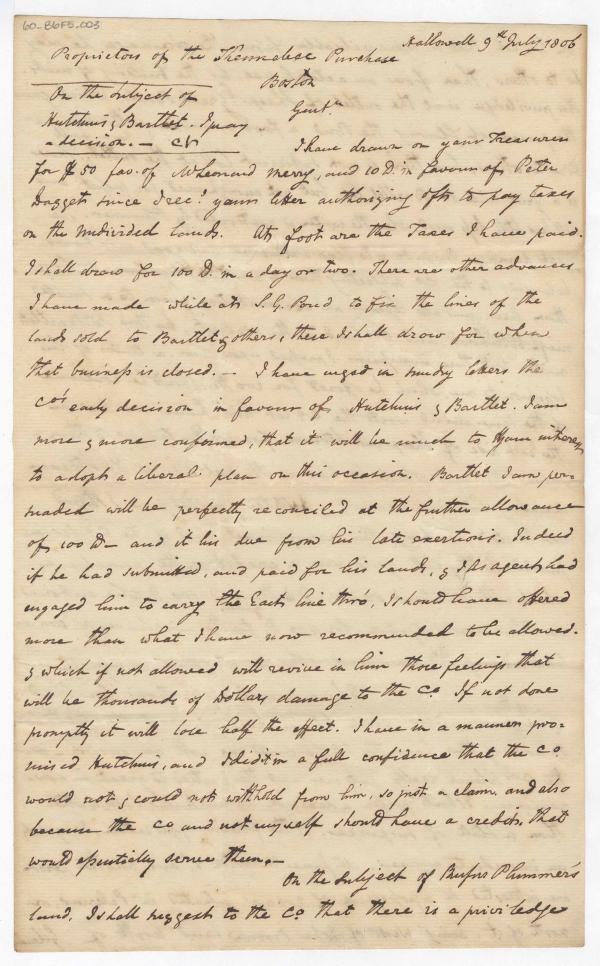 60-B6F5-003
Hallowell 9th July 1806
Proprietors of the Kennebec Purchase
Boston
On the Subject of
Hutchins & Bartlet. I pray
a decision. —
Gentn
I have drawn on your Treasurer
for $50 fav. of Leonard Merry, and 10 D. in favour of Peter
Dagget since I recd yours letter authorizing to pay taxes
on the undivided lands. At foot are the Taxes I have paid.
I shall draw for 100 D. in a day or two. There are other advances
I have made while at S. G. Pond to fix the lines of the
lands sold to Bartlet & others, these I shall draw for when
that business is closed. — I have urged in sundry letters the
Co's early decision in favour of Hutchins & Bartlet. I am
more & more confirmed, that it will be much to your interest
to adopt a liberal plan on this occasion. Bartlet I am per-
suaded will be perfectly reconciled at the further allowance
of 100 D— and it his due from his late exertions. Indeed
if he had submitted, and paid for his lands, & I as agent had
engaged him to carry the East line thro', I should have offered
more than what I have now recommended to be allowed.
& which if not allowed will revive in him those feelings that
will be thousands of Dollars damage to the Co. If not done
promptly it will lose half the effect. I have in a manner pro-
mised Hutchins, and I did it in a full confidence that the Co.
would not & could not withhold from him, so just a claim. and also
because the Co and not myself should have a credit, that
would essentially serve them. —
On the Subject of Rufus Plummer's
land, I shall suggest to the Co that there is a priviledge